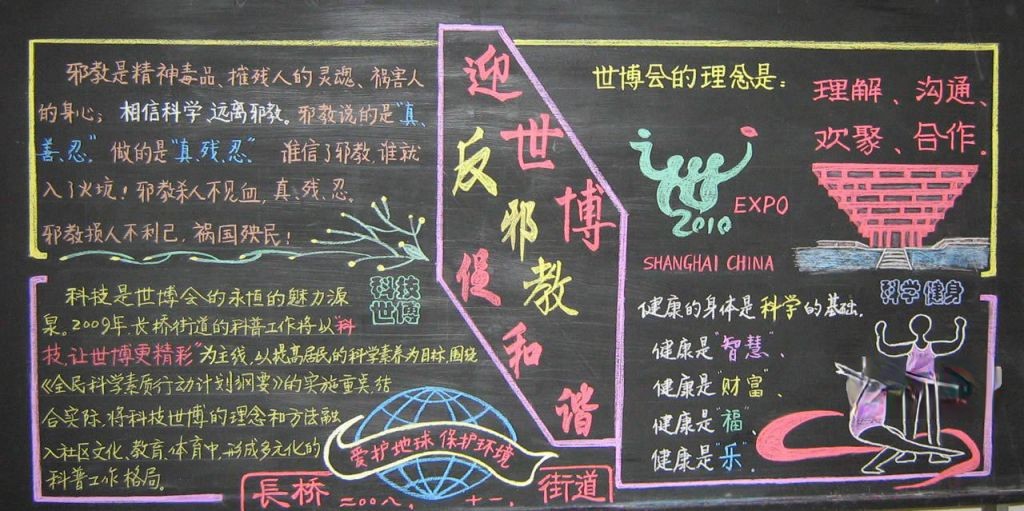 邪教是精神毒品、摧残人的灵魂、祸害人
的身心；相信科学、远离邪教。邪教说的是“真、
善、忍”，做的是“真、残、忍” 谁信了邪教，谁就
入了火坑！邪教杀人不见血，真、残、忍。
邪教损人不利己，祸国殃民！
科技是世博会的永恒的魅力源
泉。2009年长桥街道的科普工作将以“科
技，让世博更精彩”为主线，以提高居民的科学素养为目标，围绕
《全民科学素质行动计划纲要》的实施重点，结
合实际，将科技世博的理念和方法融
入社区文化、教育、体育中，形成多元化的
科普工作格局。
科技
世博
迎世博
反邪教
促和谐
世博会的理念是：
理解、沟通、
欢聚、合作.
2010
EXPO
SHANGHAI CHINA
科学健身
健康的身体是科学的基础.
健康是“智慧”、
健康是“财富”、
健康是“福”、
健康是“乐”.
爱护地球 保护环境
長桥 二〇〇八，十一， 街道